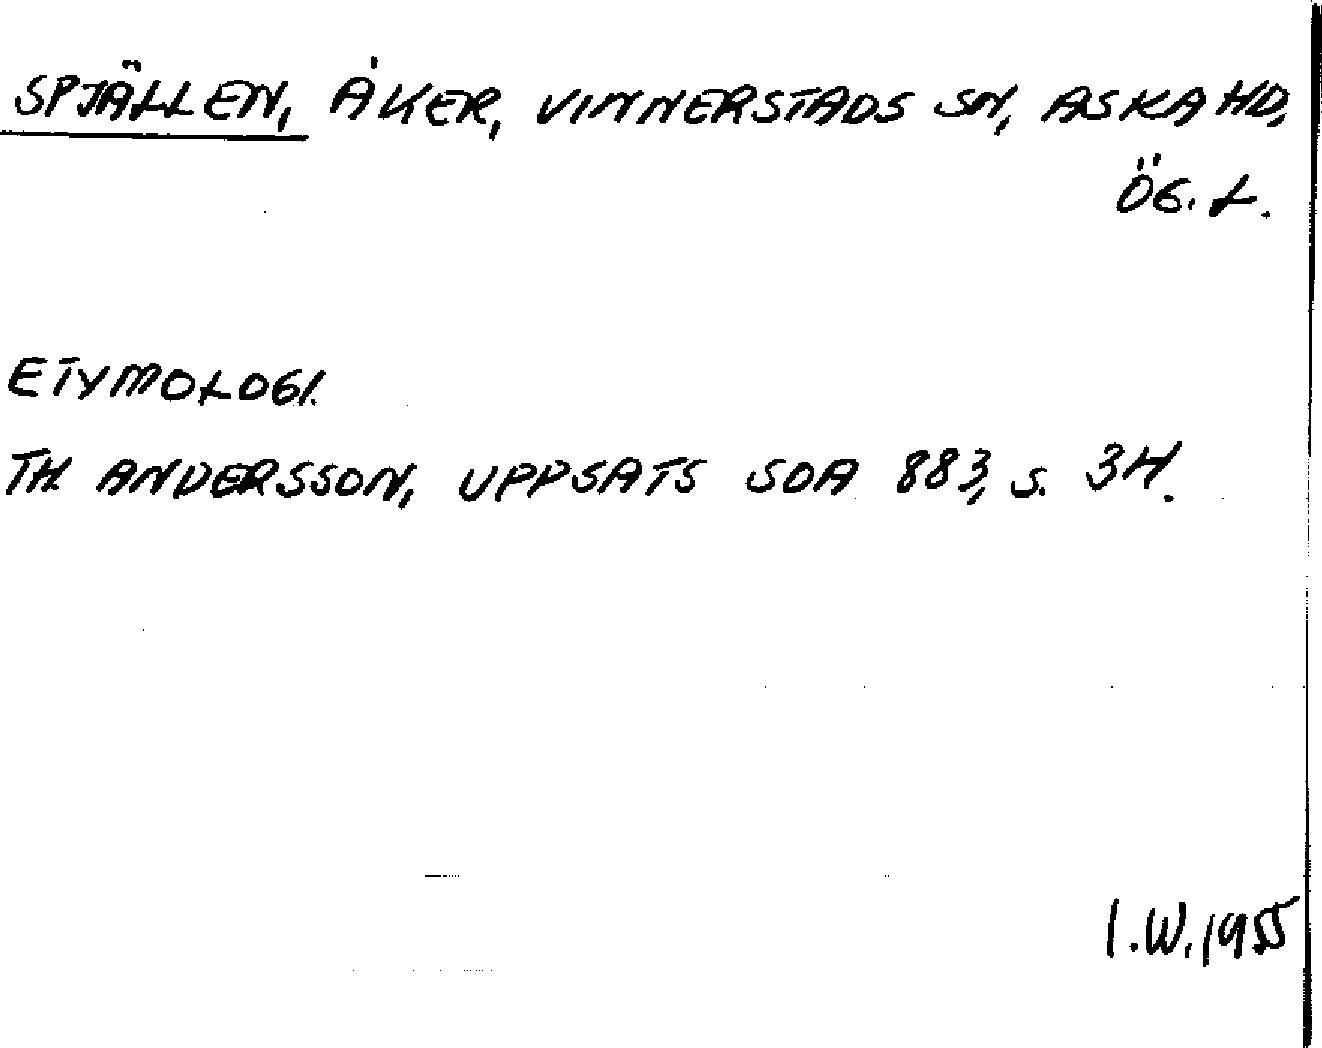 SPJÄLLEN, ÅKER, VINNERSTADS SN, ASKA HD,
ÖG. L.
ETYMOLOGI.
TH. ANDERSSON, UPPSATS SOA 883, S. 34.
I.W. 1955